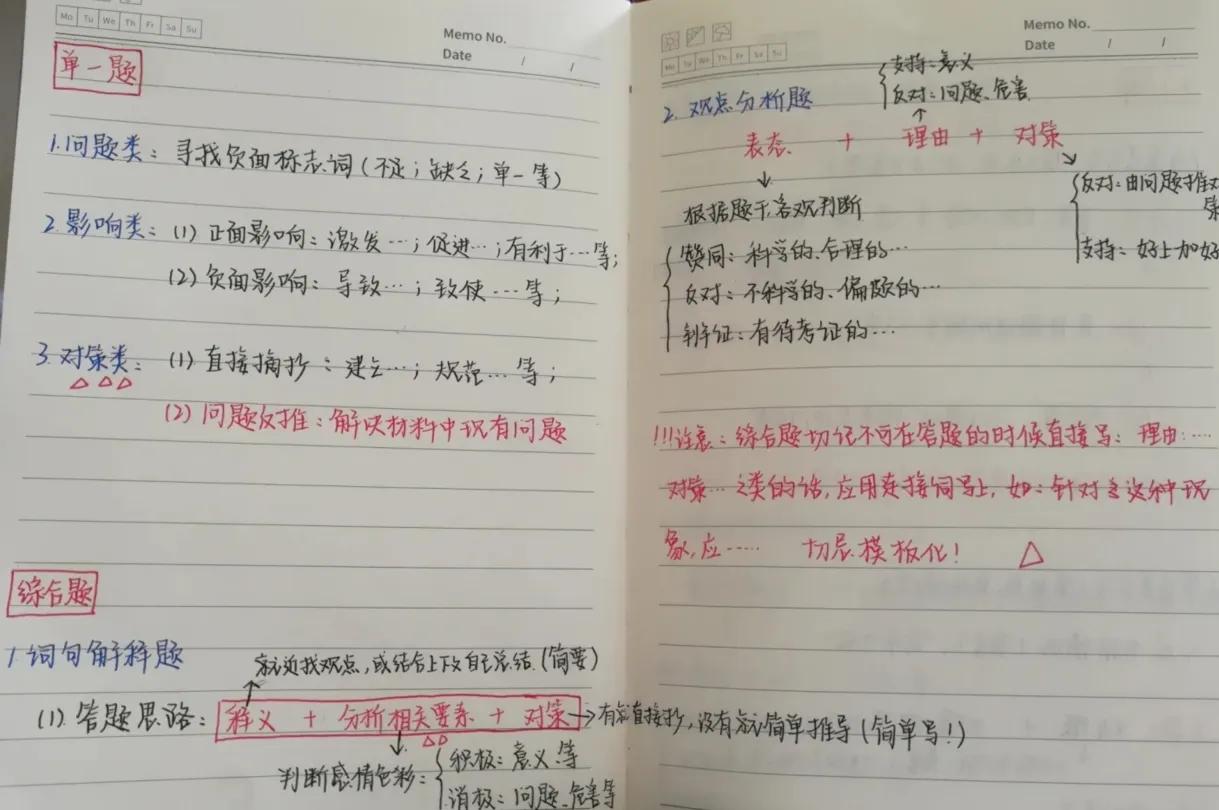 Mo Tu We Th Fr Sa Su
Memo No.
Date / /
单一题
1.问题类：寻找负面标志词(不足；缺乏；单一等)
2.影响类：(1)正面影响：激发…；促进…；有利于…等；
(2)负面影响：导致…；致使…等；
3.对策类：(1)直接摘抄：建立…；规范…等；
(2)问题反推：解决材料中现有问题
综合题
1.词句解释题
就近找观点，或结合上下文自己总结.(简要)
(1).答题思路：释义 + 分析相关要素 + 对策→有就直接抄，没有就简单推导(简单写!)
判断感情色彩：
积极：意义等
消极：问题、危害等
Mo Tu We Th Fr Sa Su
Memo No.
Date / /
2.观点分析题
支持：意义
反对：问题、危害
表态 + 理由 + 对策
根据题干，客观判断
赞同：科学的、合理的…
反对：不科学的、偏颇的…
辩证：有待考证的…
反对：由问题推对
策
支持：好上加好
!!!注意：综合题切记不可在答题的时候直接写：理由：…
对策…之类的话，应用连接词写上，如：针对这种现
象，应…… 切忌模板化!